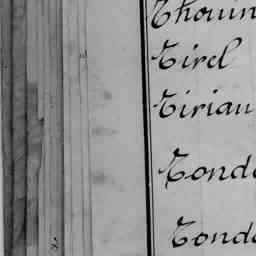 Thouin
Tirel
Tiriau
Tond
Tond